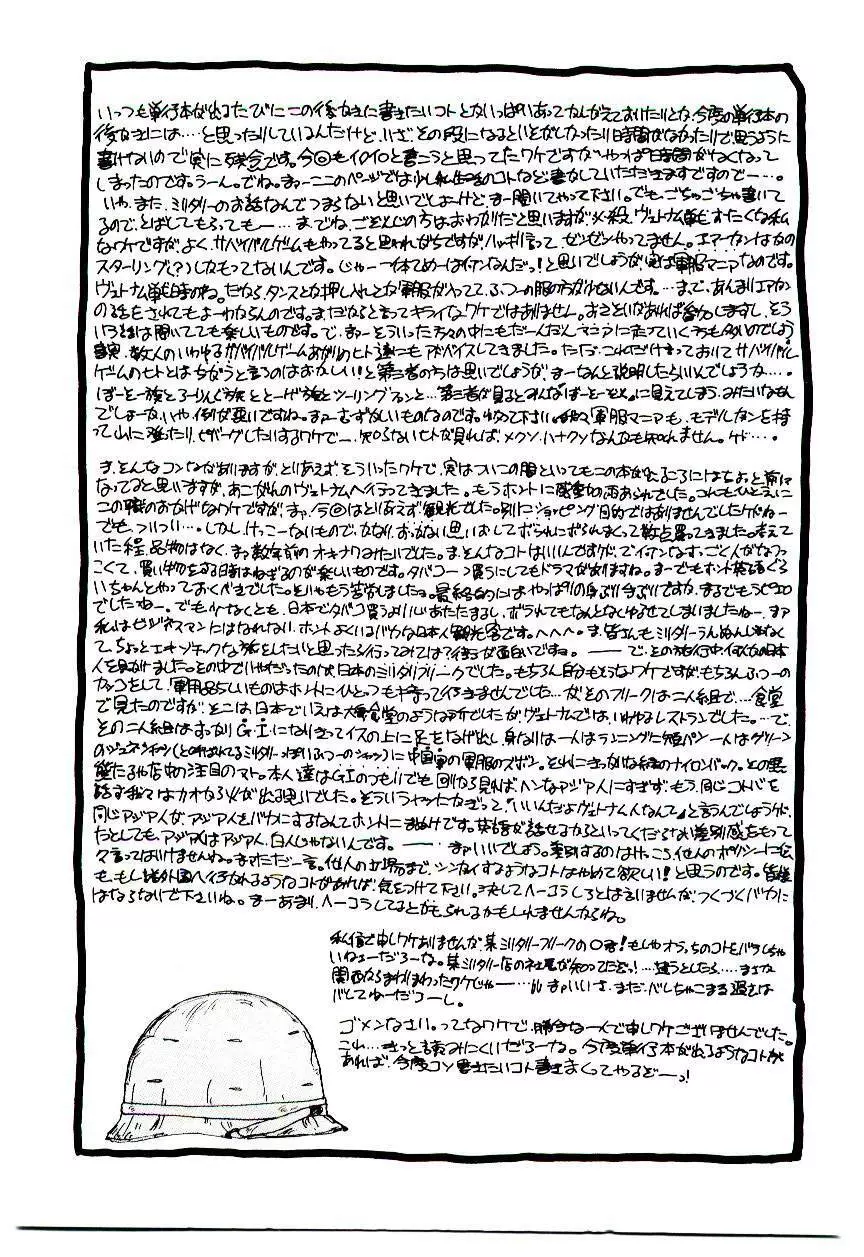 いっつも単行本が出るたびにこの後がきに書きたいコトとかいっぱいあって 今度の単行本の
後がきには……と思ったりしているんだけど、いざその段になると 時間がなかったりで思うように
書けないので実に残念です。今回もイロイロと書こうと思ってたワケですがやっぱ時間がなくなって
しまったのです。うーん。でね。まぁーここのページでは少し私 のコトなど書かしていただきますですのでー…。
いや、また、ミリタリーのお話なんでつまらないと思いでしょーけど、まー聞いてやって下さい。でも、ごちゃごちゃ書いて
るので、とばしてもらってもー…… までね、ごぞんじの方はおわかりだと思いますが 必殺、ヴェトナム戦争 すたくな私
なワケですが、よく、サバイバルゲームもやってると思われがちですが、ハッキリ言って、ゼンゼンやってません。エアーガンはかの
スターリング(?)しかもってないんです。じゃー一体てめーは何なんだっ!と思いでしょうが、実は軍服マニアなのです。
ヴェトナム戦争時のね。だから、タンスとか押し入れとか軍服が ふつーの服の方が少ないんです。…まで、あんまりエアガン
の話をされてもよーわからんのです。まだだからと言ってキライなワケではありません。 そう
いう話は聞いてても楽しいものです。で、まぁーそういった方々の中にもだーんだんマニアに走っていく方も多いのでしょう
事実、数人のいわゆるサバイバルゲームあがりのヒト達にもアドバイスしてきました。ただ、これだけ言っておいてサバイバル
ゲームのヒトとはちがうと言うのはおかしい!と第三者の方は思いでしょうが、まーなんと説明したらいいんでしょうか…。
ぼーそー族とろーりんぐ族ととーげ族とツーリングマンと…第三者が見るとみんなぼーそーぞくに見えてしまう、みたいなもん
でしょーか、いや、例が悪いですね。まぁーむずかしいものなのです。 下さい。 軍服マニアも、モデルガンを持
って山に登ったり、ビバーグしたりするワケでー、知らないヒトが見れば、メクソ、ハナクソなんかも知れません。ケド……。
ま、そんなコンなありますが、とりあえずそういったワケで、実はついこの間といってもこの本が出るころにはちょっと前に
なってると思いますが、あこがれのヴェトナムへ行ってきました。もうホントに感動の雨あられでした。これもひとえに
この職のおかげなワケですが、まァ、今回はとりあえず観光でした。別にショッピング目的ではありませんでしたけどねー
でも、ついつい…。しかし、けっこーないもので、かなり、おっかない思いおしてボラれにボられまくって数点買ってきました。考えて
いた程、品物はなく、まァ数年前のオキナワみたいでした。ま、そんなコトはいいんですけど、でイガイなすっごく人がなつ
っこくて、買い物をする時はねぎるのが楽しいものです。タバコ一つ買うにしてもドラマがありますね。まーでもホント英語ぐら
いちゃんとやっておくべきでした。そりゃもう苦労しました。最終的にはやっぱり身ぶり手ぶりですか、まるでもうピエロ
でしたねー。でも少なくとも、日本でタバコ買うよりいい。あたたまるし、ボラれてもなんとなくゆるせてしまいましたねー。まァ
私はビジネスマンにはなれない、ホント、よくいるバカな日本人観光客です。ヘヘヘ。ま、皆さんもミリタリーうんぬんじゃなく
て、ちょっとエキゾチックな旅をしたいと思ったら行ってみては? 面白いですね。 ―― で、その旅行中何人かの日本
人を見かけました。その中でいやだったのが、日本のミリタリフリークでした。もちろん自分もそうなワケですが、もちろんふつーの
カッコをして、軍用品らしいものはホントにひとつも持って行きませんでした…が、そのフリークは二人組で……食堂
で見たのですが、そこは、日本でいえば大衆食堂のような所でしたが、ヴェトナムでは、いわゆるレストランでした。…で、
その二人組はすっかりG・Iになりきってイスの上に足をなげ出し、身なりは一人はランニングに短パン、一人はグリーン
のジャングルシャツ(と呼ばれてるミリタリーっぽいふつーのシャツ)に中国軍の軍服のズボン。それにまっかな のナイロンバック。その異
態たるや店中の注目のマト。本人達はG・Iのつもりでも、回りから見ればヘンなアジア人にすぎず、もう、同じコトバを
話す我々はカオから火が出る思いでした。そういうヤツにかぎって「いいんだよヴェトナム人なんて」と言うんでしょうけど、
同じアジア人が、アジア人をバカにするなんてホントにまぬけです。英語が話せるからといってくだらない差別感をもって
たとしても、アジア人はアジア人、白人じゃないんです。 ―― まァいいでしょう。差別するのはけっこう、他人のポリシーに
々言ってはいけませんね。まァただ一言。他人の立場まで、シンガイするようなコトはやめて欲しい!と思うのです。皆様
も、もし 外国へ行かれるようなコトがあれば、気をつけて下さい。決してヘーコラしろとは言いませんが、つくづくバカに
はならないで下さいね。まーあまり、ヘーコラしてるとかもられるかもしれませんからね。
私信で申しワケありませんが、某ミリタリーフリークの○君!もしやオラっちのコトをバラしちゃ
いねぇーだろーな。某ミリタリー店の社長が知ってたぞっ!…違うとしたら……まさか
関西からまわりまわったワケじゃー……ル まァいいさ、まだ、バレちゃこまる過去は
バレてねーだろーし。
ゴメンなさい。ってなワケで、勝手な一人で申しワケございませんでした。
これ…きっと読みにくいだろーな。今度単行本が出るようなコトが
あれば、今度コソ書きたいコト書きまくってやるぞーっ!